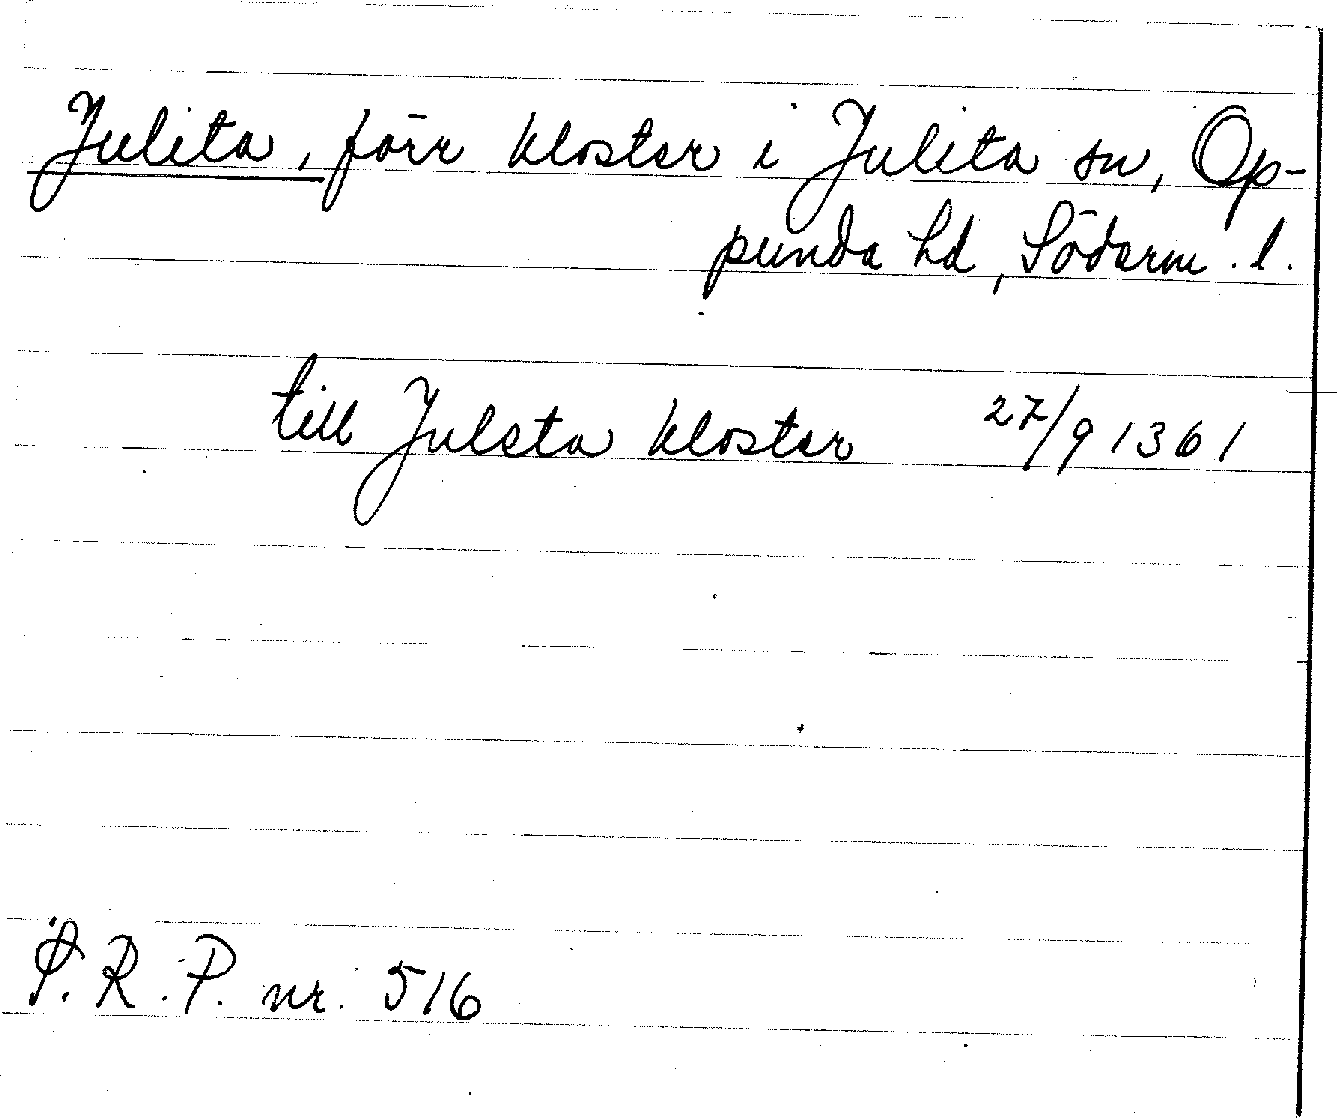 Julita, förr kloster i Julita sn, Op-
punda hd, Söderm. l.
till Juleta kloster 27/9 1361
S.R.P. nr. 516